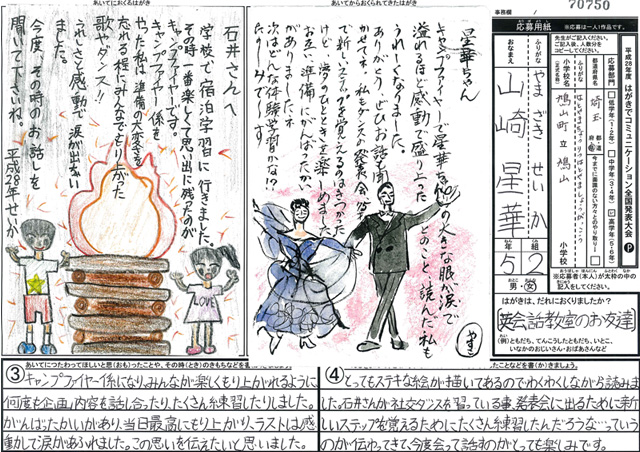 あいてにおくるはがき
石井さんへ
学校で宿泊学習に行きました。
その時一番楽しくて思い出に残ったのが
キャンプファイヤーです。
キャンプファイヤー係を
やった私は準備の大変さを
忘れる程にみんなでもり上がった
歌やダンス!!
うれしさと感動で涙が出ない
ました。
今度、その時のお話しを
聞いて下さいね。平成28年せいか
LOVE
あいてからおくられてきたはがき
星華ちゃん
キャンプファイヤーで星華ちゃんの大きな眼が涙で
溢れるほど感動で盛り上った
とのこと、読んだ私も
うれしくなりました。
ありがとう。ぜひお話を聞
で新しいステップを覚えるのは
けど、夢のひとときを楽しめました
お互い準備にがんばったかい
がありましたネ
次はどんな体験学習かな!?
たのしみで〜す
70750
事務欄
応募用紙
※応募は一人1作品です。
平成28年度 はがきでコミュニケーション全国発表大会
応募部門
低学年(1・2年)
中学年(3・4年)
高学年(5・6年)
都道府県名
埼玉
小学校名
鳩山町立 鳩山
小学校
ふりがな
やまざき せいか
おなまえ
山崎 星華
年 組
5 2
男・女
※応募者(本人)が太枠の中の
記入をしてください。
はがきは、だれにおくりましたか?
英会話教室のお友達
(例)ともだち、てんこうしたともだち、いとこ、
いなかのおじいさん・おばあさんなど
あいてにつたわってほしいと思(おも)ったことや、その時(とき)のきもちなどを書(か)きましょう。
③キャンプファイヤー係になり、みんなが楽しくもり上がれるように
何度も企画内容を話し合ったり、たくさん練習したりしました。
がんばったかいがあり、当日最高にもり上がり、ラストは感
動して涙があふれました。この思いを伝えたいと思いました。
④とってもステキな絵が描いてあるのでわくわくしながら読みま
した。石井さんが社交ダンスを習っている事、発表会に出るために新
しいステップを覚えるためにたくさん練習したんだろうな…っていう
のが伝わってきて、今度会って話すのがとっても楽しみです。